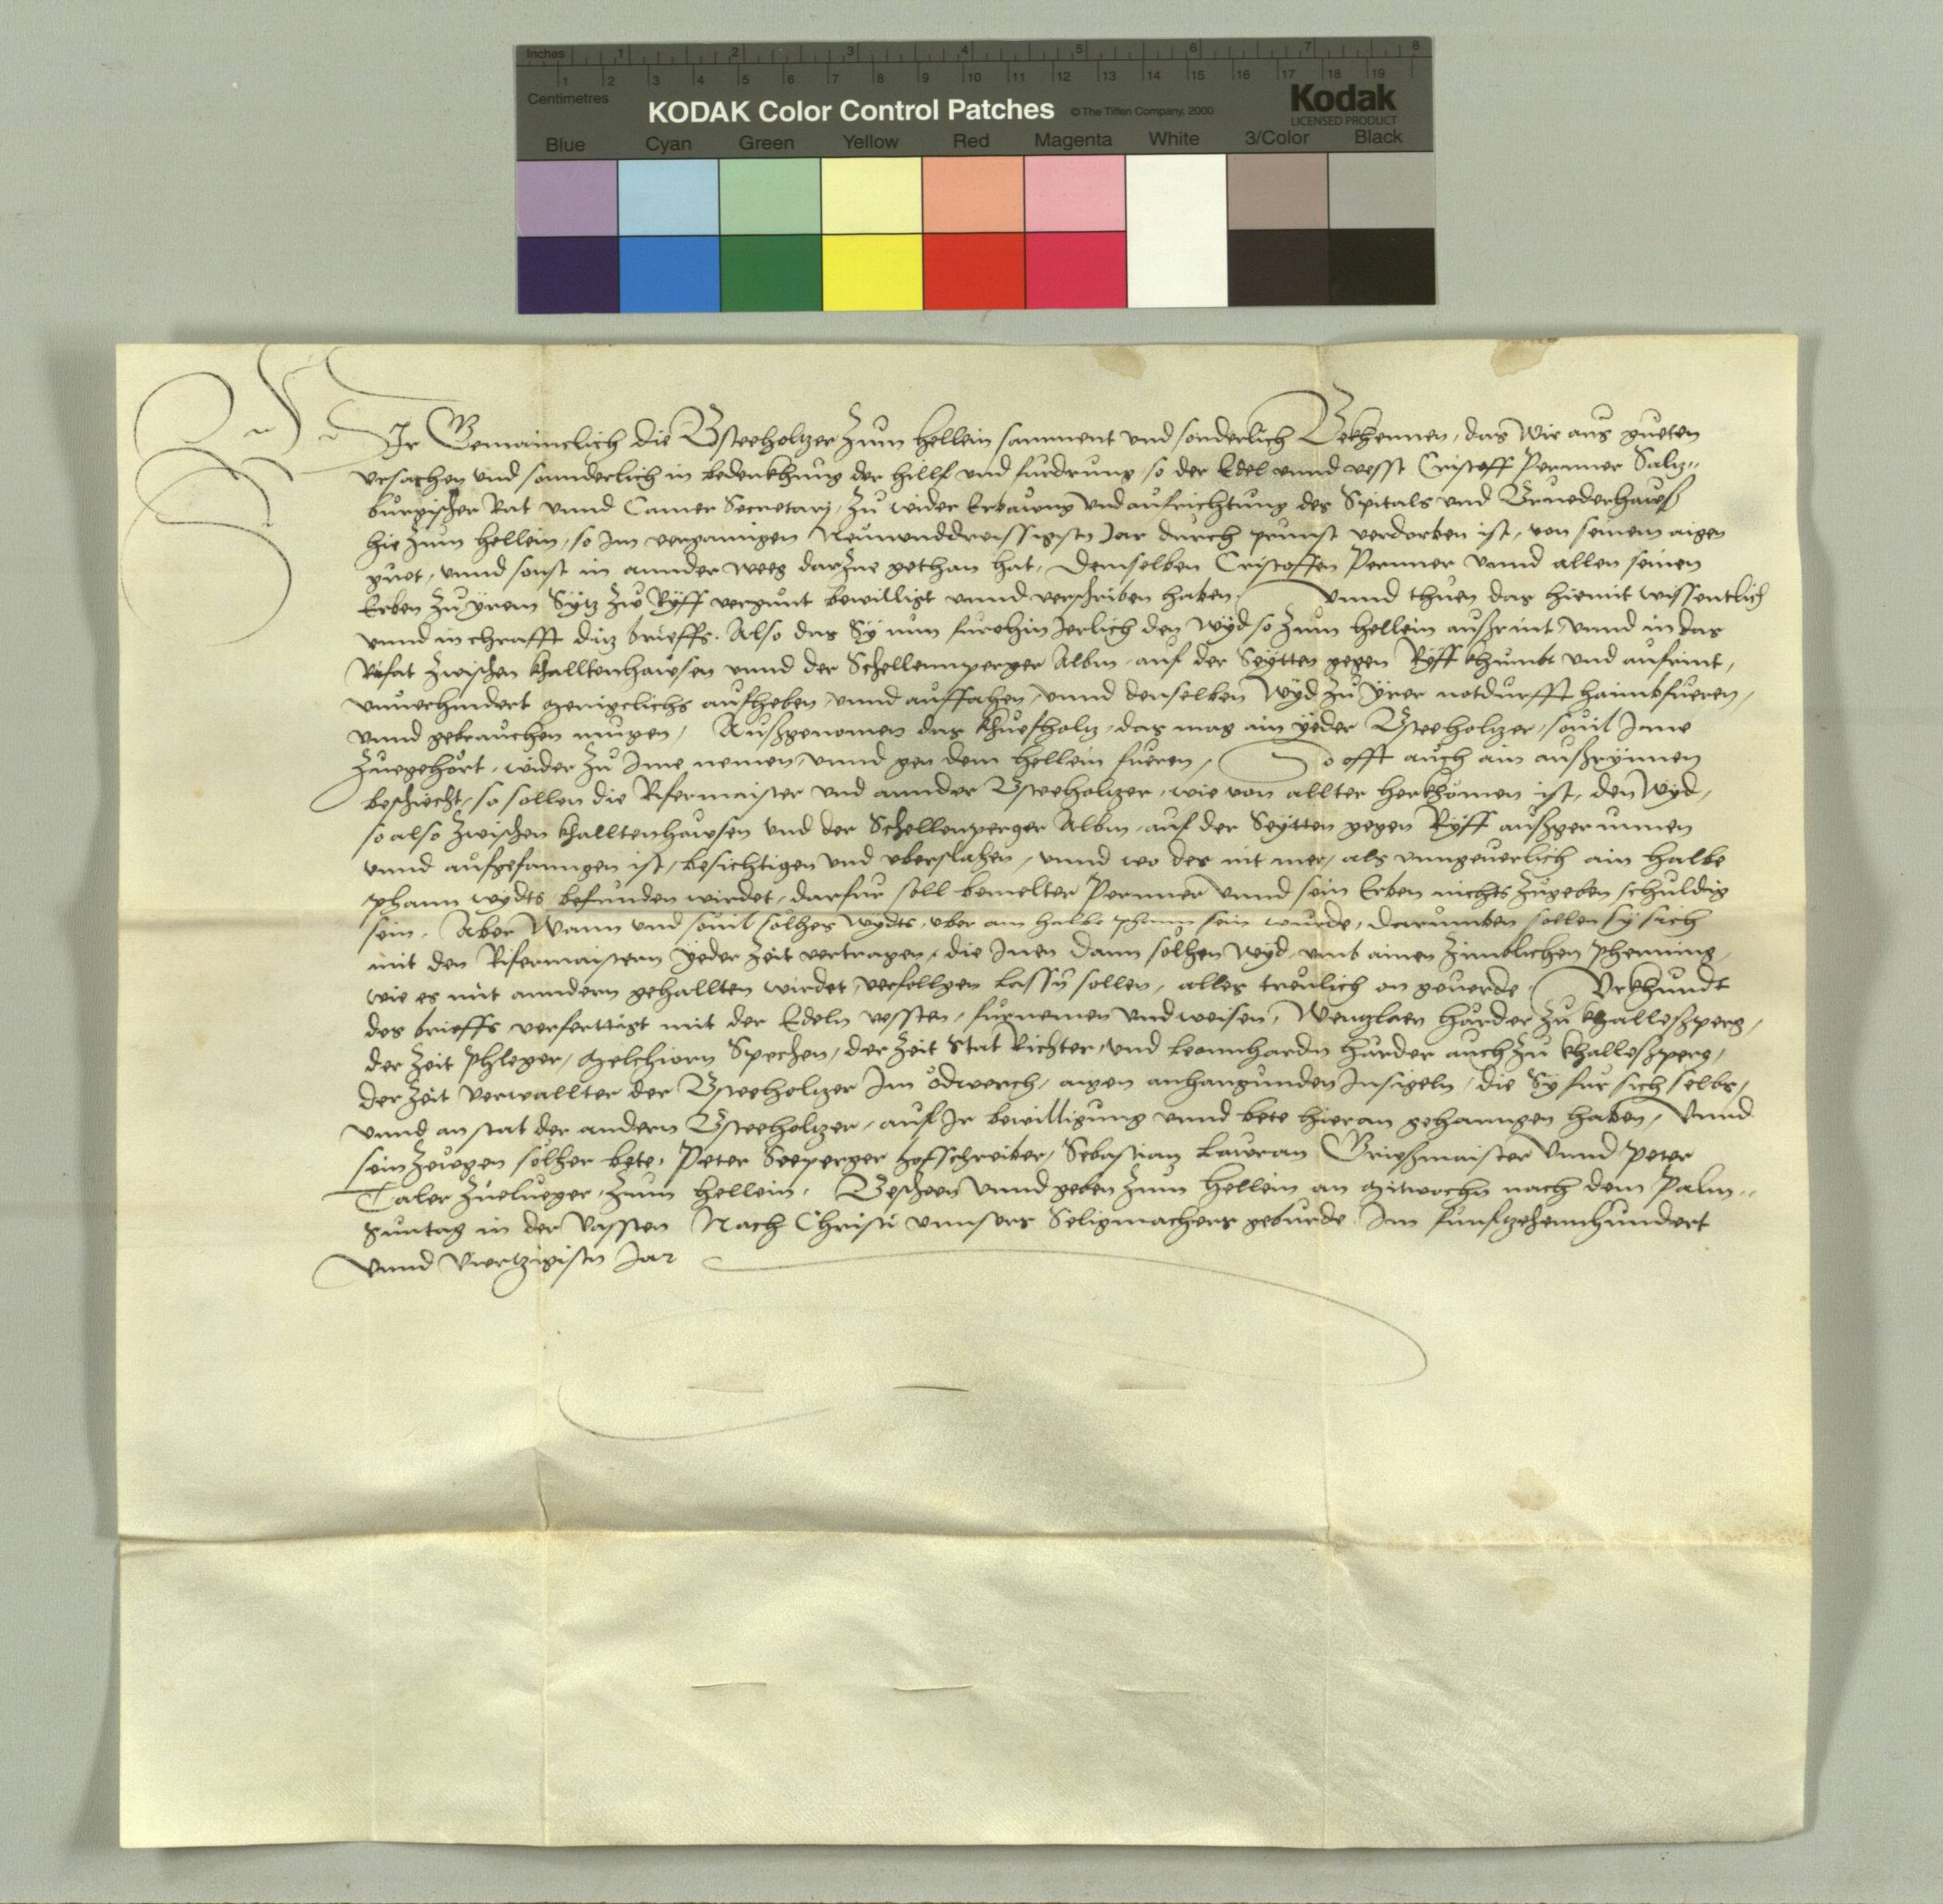 Inches 1 2 3 4 5 6 7 8
1 2 3 4 5 6 7 8 9 10 11 12 13 14 15 16 17 18 19
Centimetres
KODAK Color Control Patches © The Tiffen Company, 2000 Kodak
LICENSED PRODUCT
Blue Cyan Green Yellow Red Magenta White 3/Color Black
Wir Gemainclich die Gsteeholtzer zum Hellein samment und sonderlich Bekhennen, das Wir aus gueten
ursachen und sonnderlich in bedenkhung der hillf und furdrung, so der Edel vnnd vesst Cristoff Permner Saltz„
burgischer Rat vnnd Camer Secretarj, zu wider Erbawng und aufrichtung des Spitals und Bruederhawß
hie zum Hellein, so Im vergangen Neununddreissigistn Jar durch prunst verdorben ist, von seinem aigen
guet, vnnd sonst in annder weeg darzue gethan hat, Demselben Cristoffen Permner vnnd allen seinen
Erben zu yrem Sytz zw Ryff vergunt bewilligt vnnd verschriben haben. Vnnd thuen das hiemit wissentlich
vnnd in chrafft ditz brieffs. Also das Sy nun furohin Jerlich den Wyd so zum Hellein außrint, vnnd in das
Rifat zwischen Khalltenhawsen vnnd der Schellennperger Albm, auf der Seytten gegen Ryff khumbt und aufrint,
vnuerhindert menigclichs aufheben vnnd auffahen, vnnd denselben Wyd zu Yrer notdurfft haimbfueren,
vnnd gebrauchen mugen, Außgenomen das khuefholtz, das mag ain yeder Gsteeholtzer, souil Jme
zuegehört, wider zu Jme nemen vnnd gen dem Hellein fueren, So offt auch ain außrynnen
beschiecht, so sollen die Rifermaister und annder Gsteeholtzer, wie von allter herkhomen ist, den Wyd,
so also zwischen Khalltenhawsen und der Schellenperger Albm, auf der Seytten gegen Ryff außgerunnen
vnnd aufgefanngen ist, besichtigen und uberslahen, vnnd wo des nit mer, als vnngeuerlich ain halbe
phann wydts befunden wirdet, darfur soll bemelter Permner vnnd sein Erben nichts zugeben schuldig
sein. Aber Wann und souil solhes Wydts, uber ain halbe phann sein wurde, darumben sollen sy sich
mit den Rifermaistern yeder Zeit vertragen, die Jnen dann solhen Wyd, umb ainen zimblichen phenning,
wie es mit anndern gehallten wirdet, verfollgen lassn sollen, alles treulich on geuerde. Urkhundt
des brieffs verferttigt mit der Edeln vessten, furnemen und weisen, Wenntzlaen Harder zu Khalleßperg,
der Zeit Phleger, Melchiorn Spechen, der Zeit Stat Richter, und Leonnhardn Harder auch zu Khalleßperg,
der Zeit Verwallter der Gsteeholtzer Jm odwerch, aigen anhangunden Jnsigeln, die Sy fur sich selbs,
vnnd an stat der andern Gsteeholtzer, auf Jr bewilligung vnnd bete hieran gehanngen haben, Vnnd
sein zeugen solher bete, Peter Seeperger hofschreiber, Sebastian Lawran Grießmaister vnnd Peter
Taler zuelueger, zum Hellein, Beschehen vnnd geben zum Hellein an Mitwochn nach dem Palm„
Suntag in der Vassten Nach Christi vnnsers Seligmachers geburde Im funfzehennhundert
vnnd Viertzigistn Jar